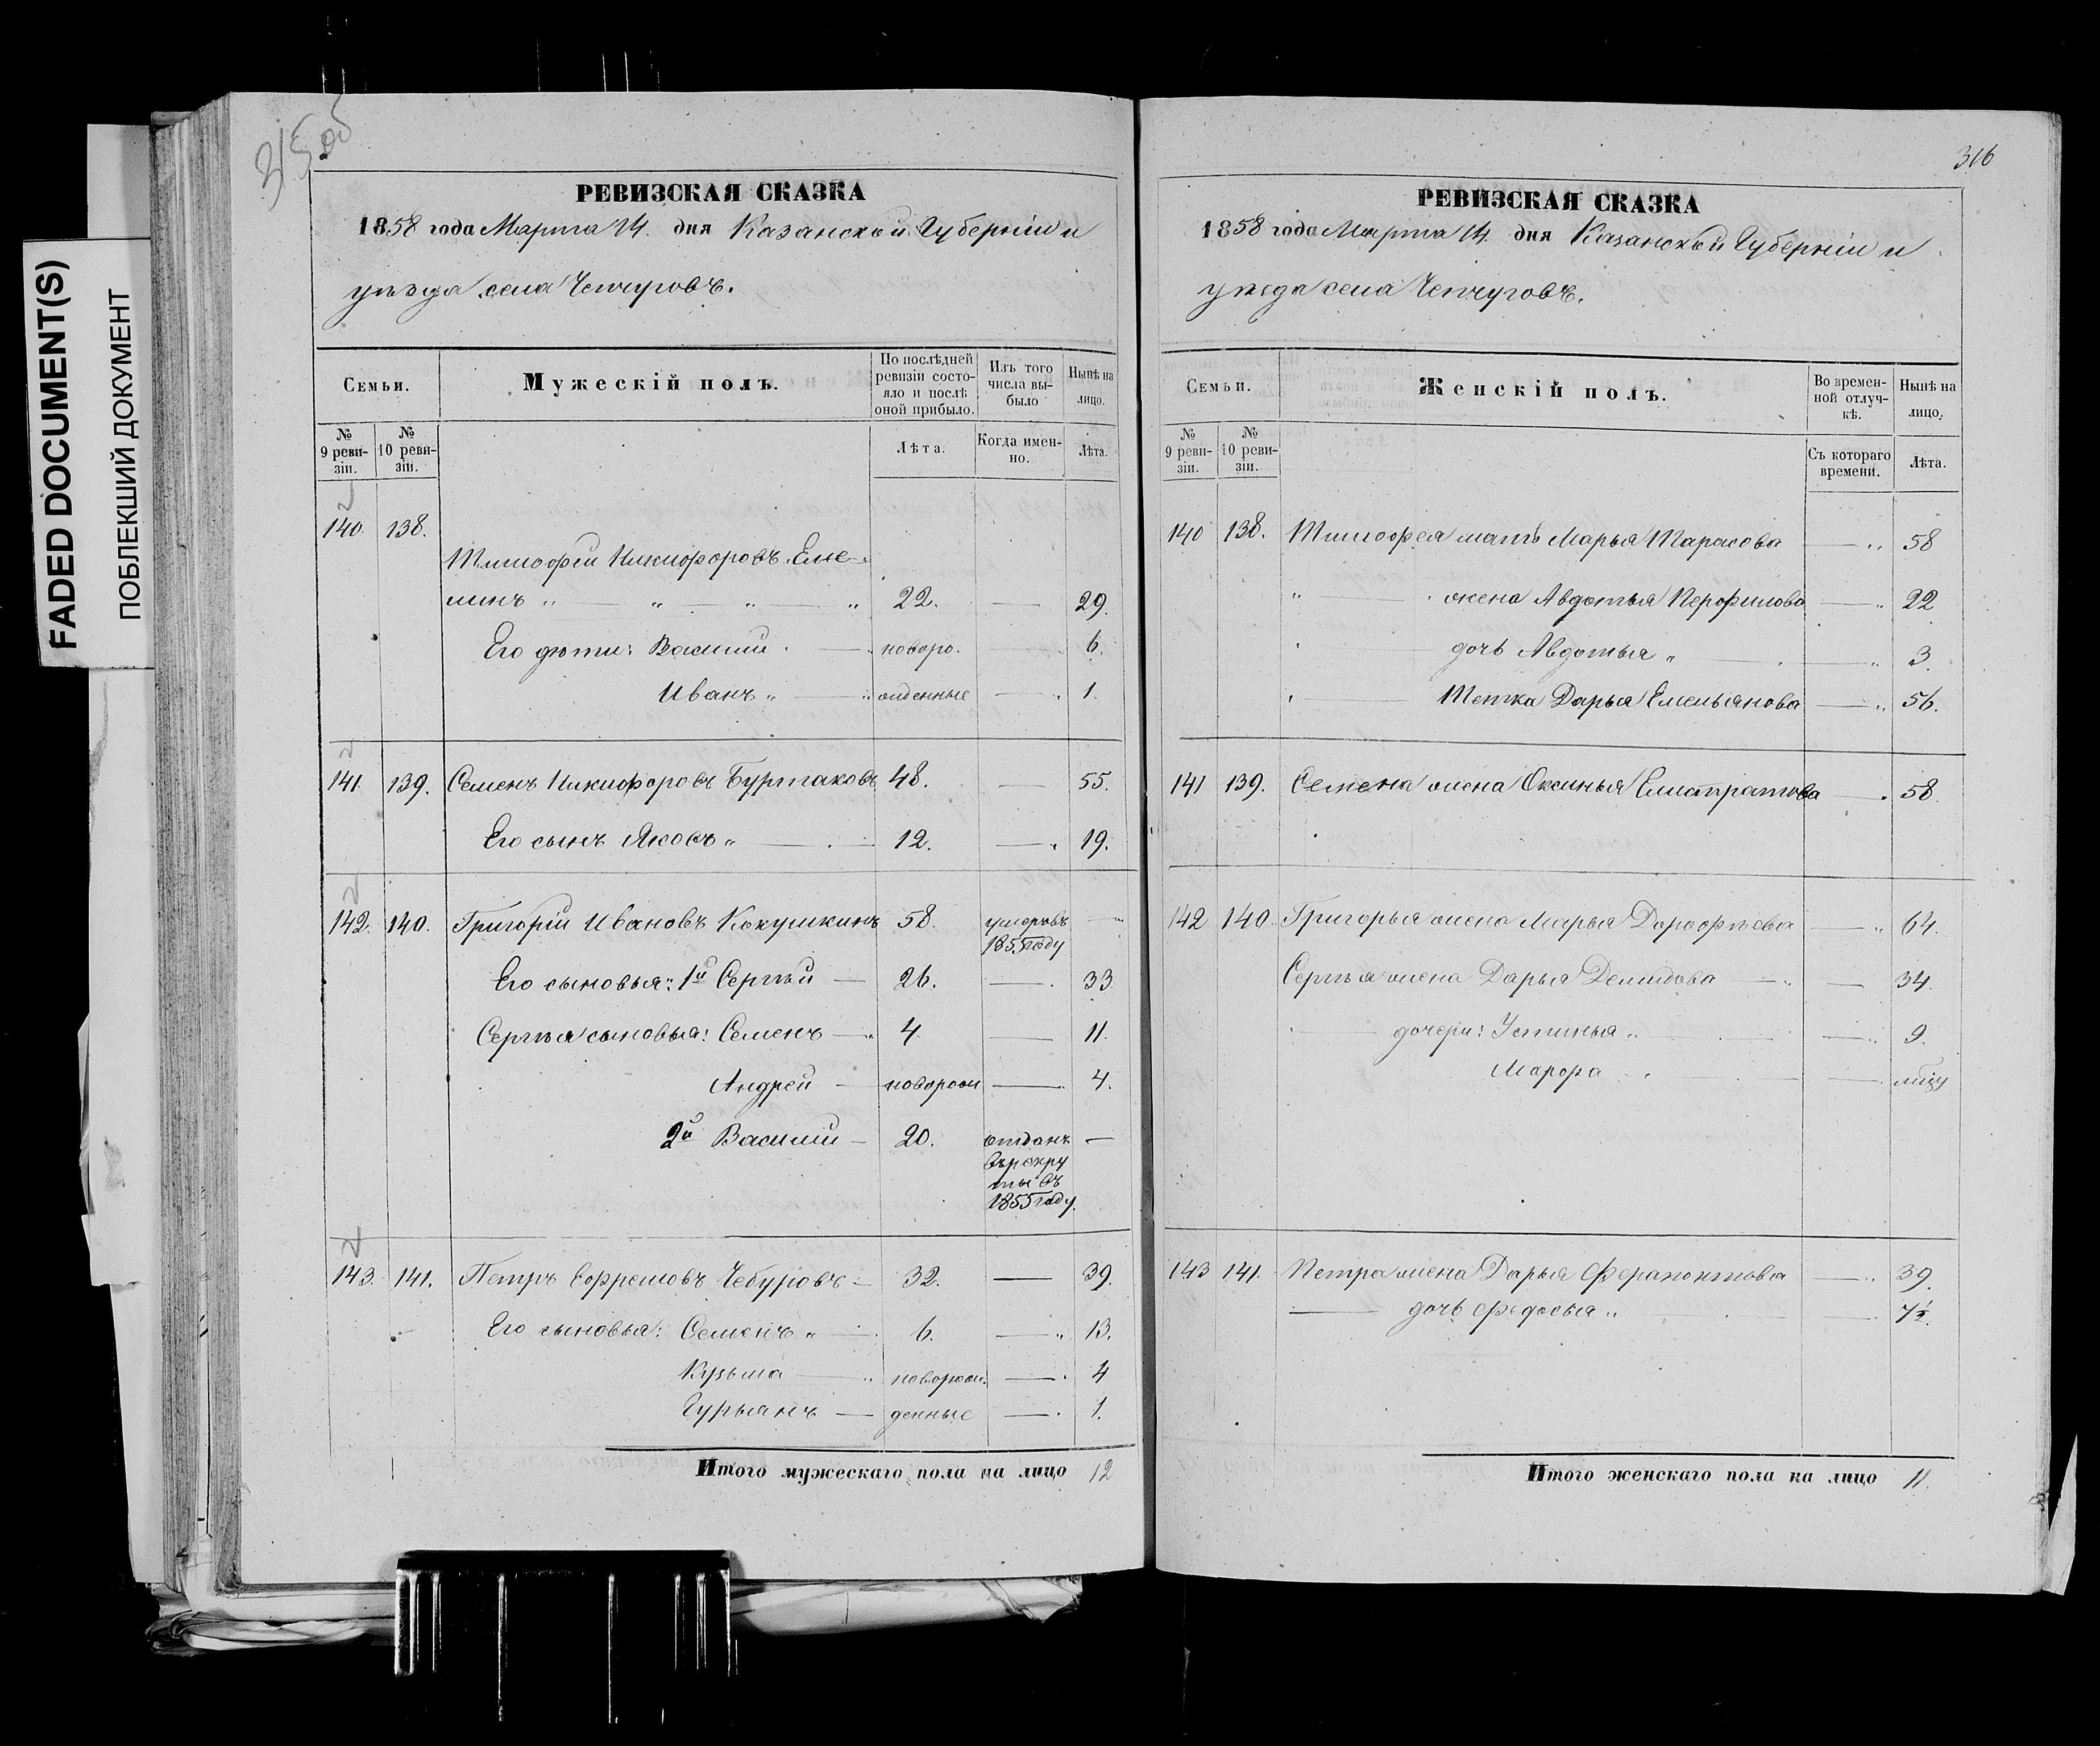 FADED DOCUMENT(S)
ПОБЛЕКШИЙ ДОКУМЕНТ
315 об
РЕВИЗСКАЯ СКАЗКА
1858 года Марта 14. дня Казанской Губерніи и
уѣзда села Чепчуговъ.
Семьи.
Мужескій полъ.
По послѣдней ревизіи состояло и послѣ оной прибыло.
Изъ того числа выбыло
Нынѣ на лицо.
№ 9 ревизіи.
№ 10 ревизіи.
Лѣта.
Когда именно.
Лѣта.
140. 138.
Тимофей Никифоровъ Еме-
линъ 22. — 29.
Его дѣти: Василий новоро. 6.
Иванъ жденные — 1.
141. 139. Семенъ Никифоровъ Буртаковъ 48. — 55.
Его сынъ Яковъ 12. — 19.
142. 140. Григорій Ивановъ Кокушкинъ 58. умеровъ —
1855 году
Его сыновья: 1й Сергѣй — 26. — 33
Сергѣя сыновья: Семенъ — 4 — 11.
Андрей — феворож — 4.
2й Василій — 20. отданъ —
въ рекру
ты въ
1855 году.
143. 141. Петръ Ефремовъ Чебуровъ — 32. — 39.
Его сыновья: Семенъ 6. — 13.
Кузьма — новорож. — 4
Гурьянъ — денные — 1.
Итого мужескаго пола на лицо 12
316
РЕВИЗСКАЯ СКАЗКА
1858 года Марта 14. дня Казанской Губерніи и
уѣзда села Чепчуговъ.
Семьи.
Женскій полъ.
Во временной отлучкѣ.
Нынѣ на лицо.
№ 9 ревизіи.
№ 10 ревизіи.
Съ котораго времени.
Лѣта.
140 138. Тимофея мать Марья Тарасова — 58
— жена Авдотья Перфилова — 22
дочь Авдотья — 3.
— Тетка Дарья Емельянова — 56.
141 139. Семена жена Оксинья Елистратова — 58.
142 140. Григорья жена Марья Дорофѣева — 64.
Сергѣя жена Дарья Демидова — 34.
— дочери: Устинья — 9.
Марфа —
143 141. Петра жена Дарья Ферапонтова — 39.
— дочь Федосья — 7½.
Итого женскаго пола на лицо 11.